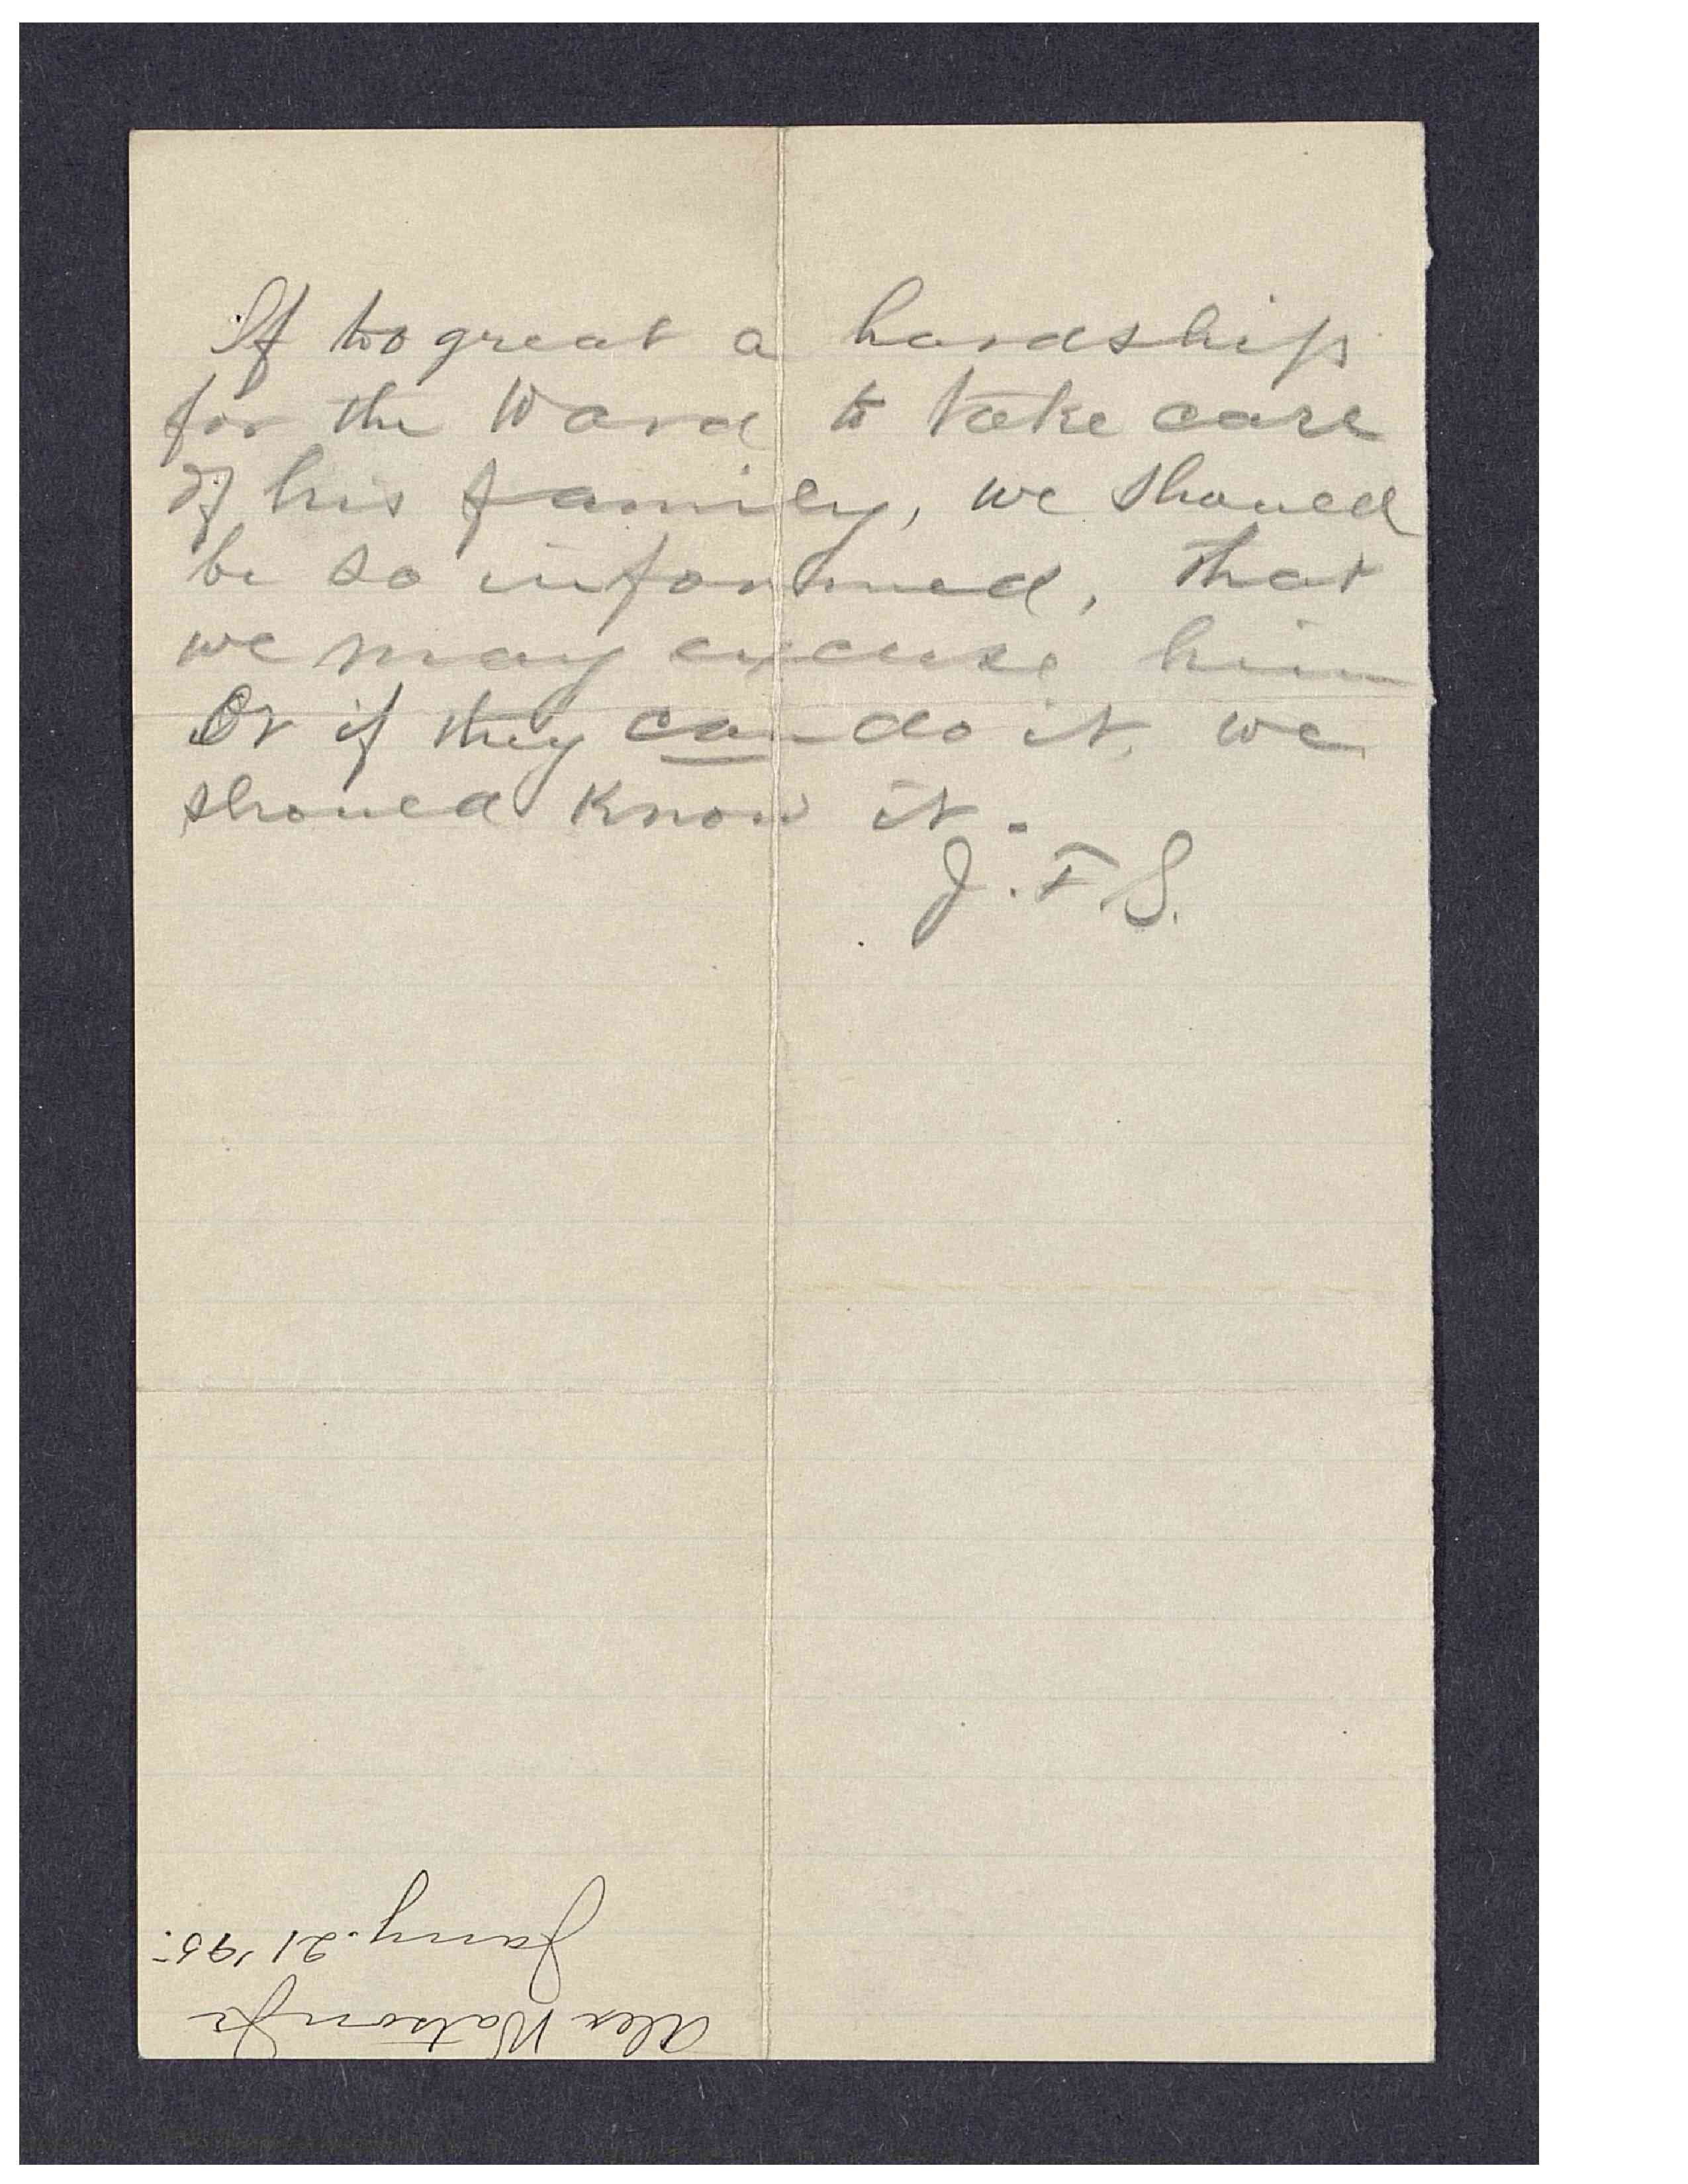 If too great a hardship
for the Ward to take care
of his family, we should
be so informed, that
we may excuse him
Or if they can do it, we
should know it.
J. F. S.
Alex Watson Jr
Jany. 21 '95.